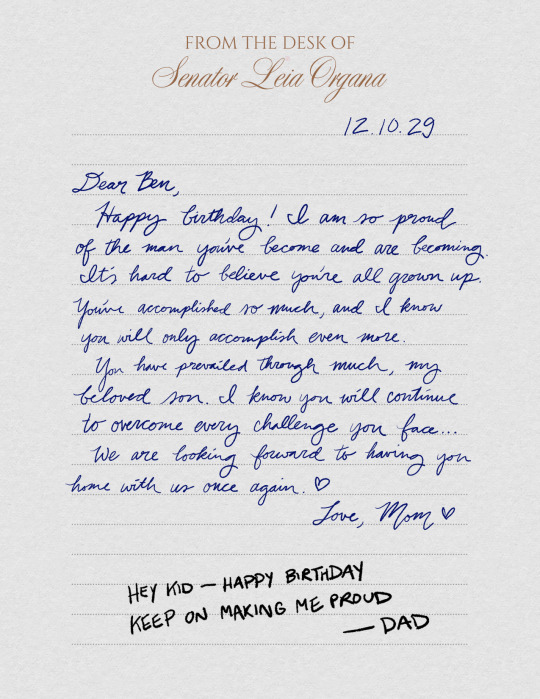 FROM THE DESK OF
Senator Leia Organa
12.10.29
Dear Ben,
Happy birthday! I am so proud
of the man you've become and are becoming.
It's hard to believe you're all grown up.
You've accomplished so much, and I know
you will only accomplish even more.
You have prevailed through much, my
beloved son. I know you will continue
to overcome every challenge you face...
We are looking forward to having you
home with us once again. ♡
Love, Mom ♡
HEY KID — HAPPY BIRTHDAY
KEEP ON MAKING ME PROUD
— DAD